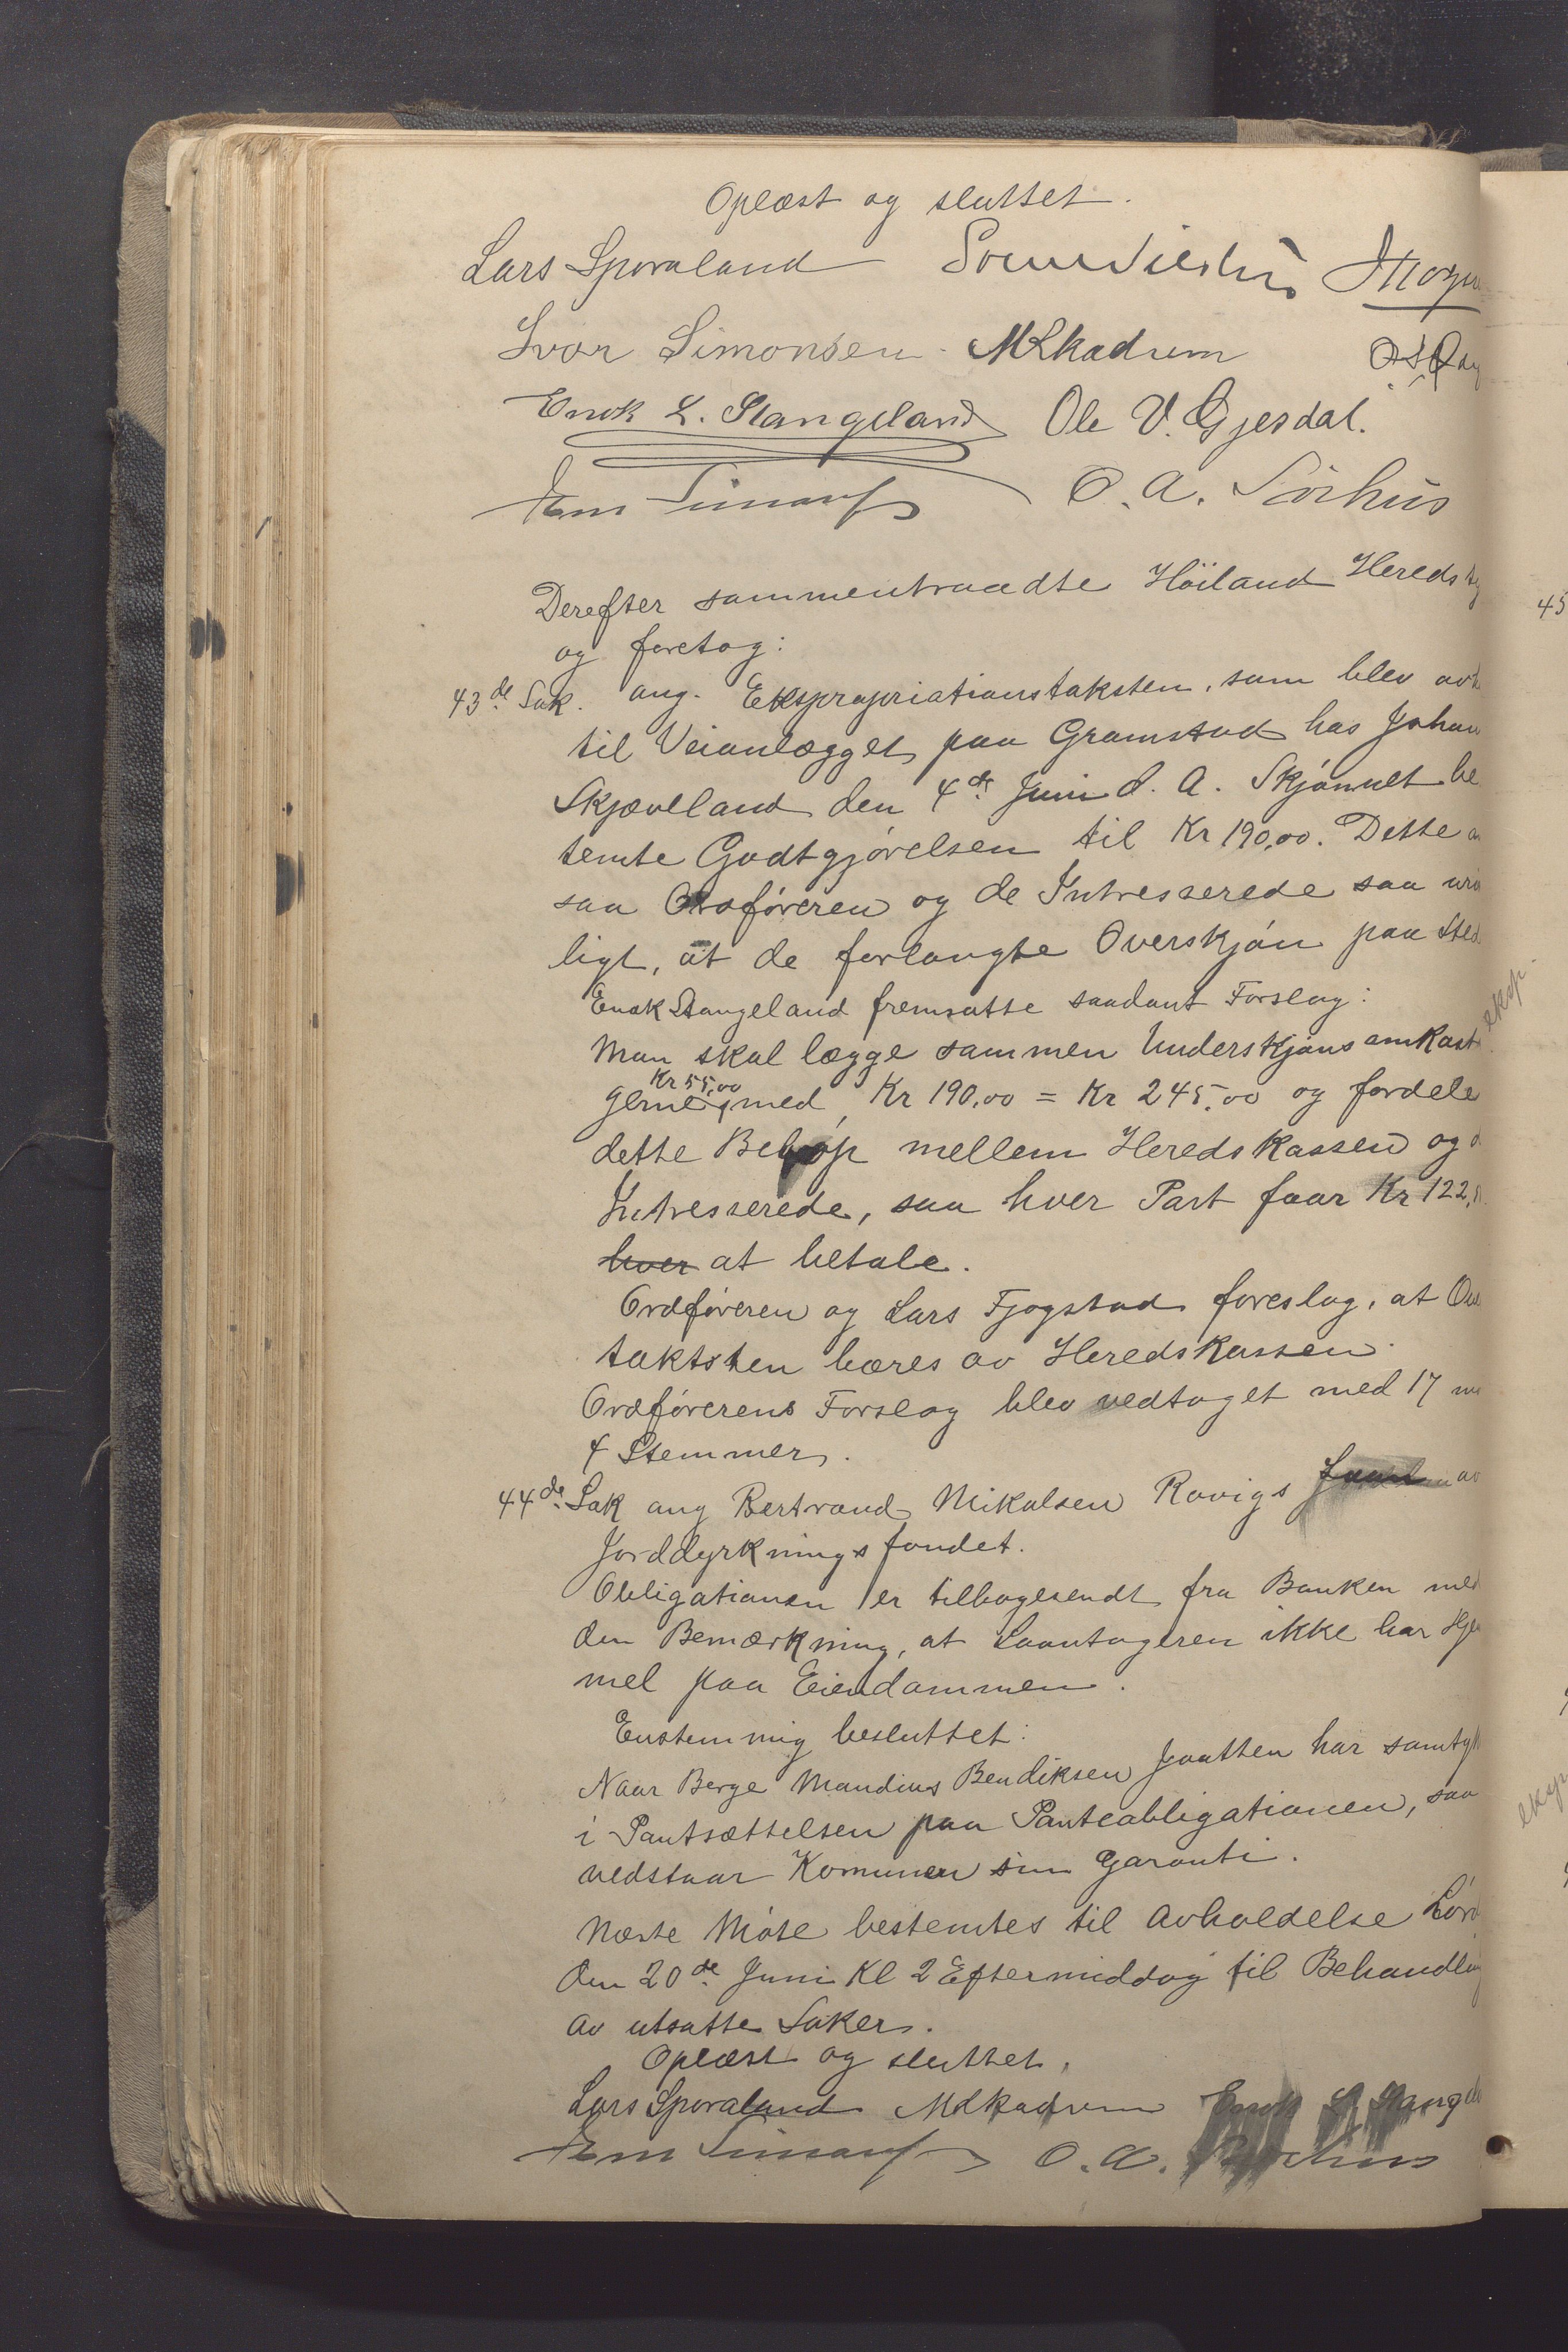 Oplæst og sluttet.
Lars Sporaland
Ivar Simonsen M Skadsem
Enok L. Stangeland Ole V. Gjesdal.
O. A. Sørhus
Derefter sammentraadte Höiland Hereds
og foretog:
43de Sak. ang. Ekspropriationstaksten, som blev avh
til Veianlægget paa Gramstad hos Johan
Skjævelland den 4de Juni d. A. Skjönnet be
temte Godtgjørelsen til Kr 190,00. Dette a
saa Ordføreren og de Intresserede saa uri
ligt, at de forlangte Overskjön paa Sted
Enok Stangeland fremsatte saadant Forslag:
Man skal lægge sammen Underskjönsomkost
Kr 55,00
gerne med Kr 190,00 = Kr 245,00 og fordele
dette Beløp mellemHeredskassen og d
Intresserede, saa hver Part faar Kr 122,
hver at betale.
Ordføreren og Lars Fjogstad foreslog, at Ove
taktsten bæres av Heredskassen.
Ordførerens Forslag blev vedtaget med 17 m
4 Stemmer.
44de Sak ang Bertrand Mikalsen Rovigs Laan av
Jorddyrkningsfondet.
Obligationen er tilbagesendt fra Banken med
den Bemærkning, at Laantageren ikke har Hje
mel paa Eiendommen.
Enstemmig besluttet:
Naar Berge Mandius Bendiksen Jaatten har samtyk
i Pantsættelsen paa Panteobligationen, saa
vedstaar Komunen sin Garanti.
Næste Möte bestemtes til Avholdelse Lørd
den 20de Juni Kl 2 Eftermiddag til Behandling
av utsatte Saker.
Oplæst og sluttet.
Lars Sporaland M Skadsem Enok L Stangela
O. A. Sørhus
45
eksp.